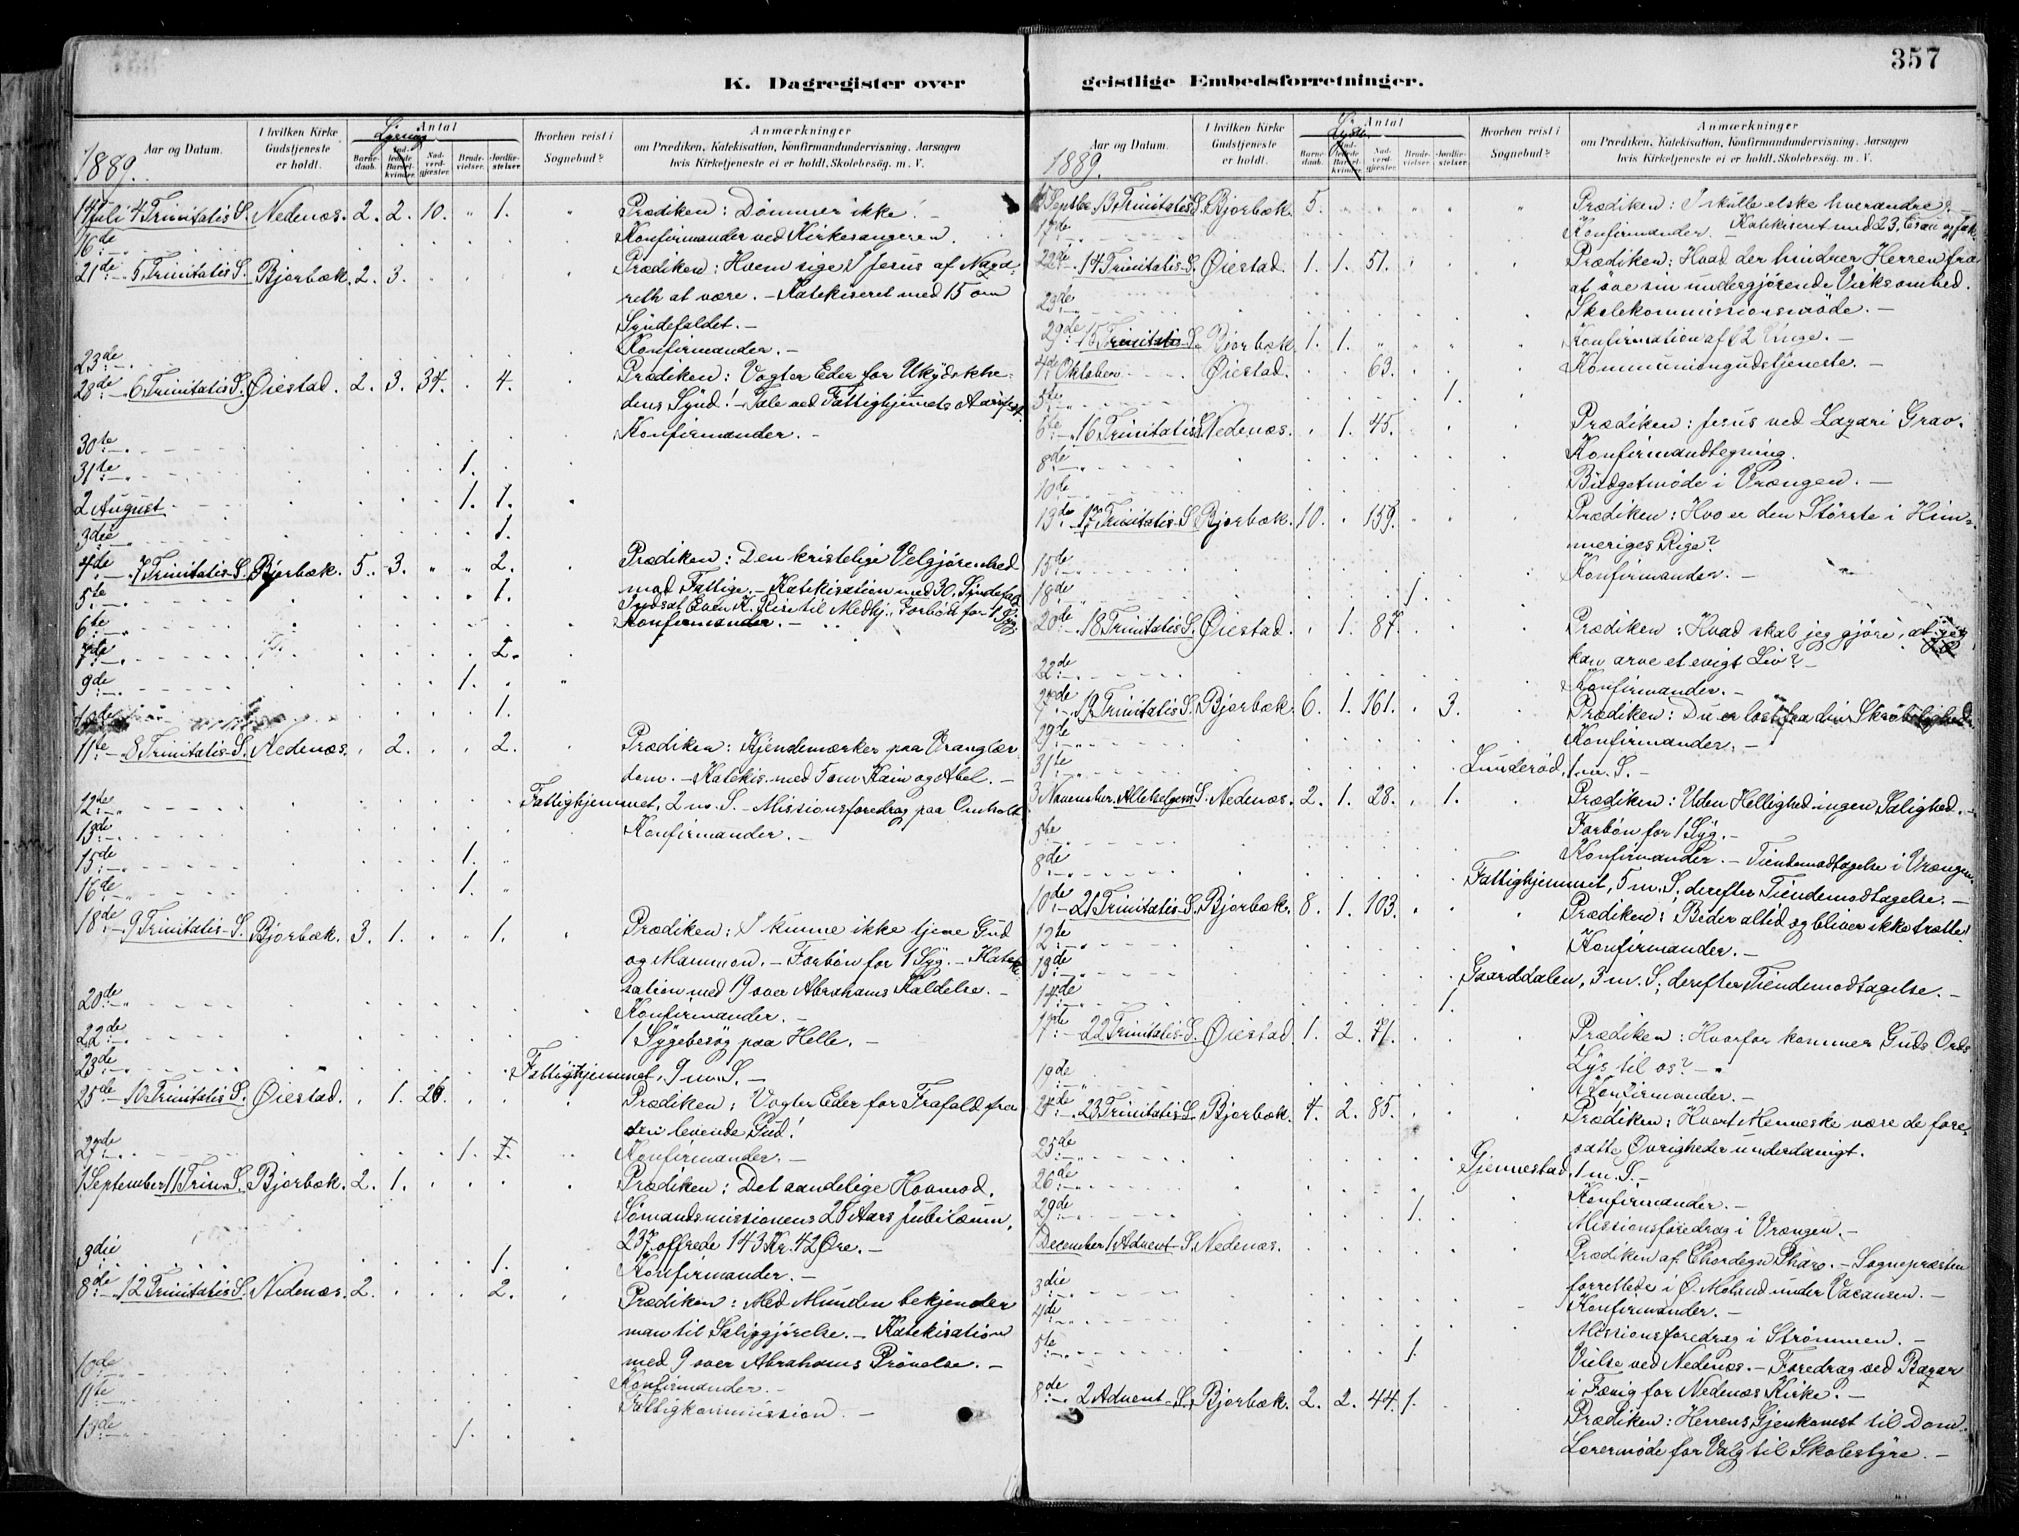 357
K. Dagregister over
geistlige Embedsforretninger.
1889.
Aar og Datum.
I hvilken Kirke Gudstjeneste er holdt.
Antal
Barnedaab.
Indledede Barselkvinder.
Nadvergjæster.
Brudevielser.
Jordfæstelser.
Hvorhen reist i Sognebud?
Anmærkninger
om Prædiken, Katekisation, Konfirmandundervisning. Aarsagen
hvis Kirketjeneste ei er holdt. Skolebesøg. m. V.
14 Juli 4 Trinitatis S. Nedenæs. 2. 2. 10. " 1. " Prædiken: Dømmer ikke! –
16de Konfirmander ved Kirkesangeren.
21de 5 Trinitatis S. Bjorbæk. 2. 3. Prædiken: Hvem sige I Jesus af Naza-
reth at være. – Katekiseret med 15 om
Syndefaldet. –
23de Konfirmander. –
28de 6 Trinitatis S. Øiestad. 2. 3. 34. 4. Prædiken: Vogter Eder for Ukydskhe-
dens Synd! – Tale ved Fattighjemmets Aarsfest.
30te Konfirmander. –
31te 1.
2 August 1. 1.
3die 1.
4de 7 Trinitatis S. Bjorbæk. 5. 3. " " 2. Prædiken: Den kristelige Velgjørenhed
5te 1. mod Fattige. – Katekisation med 30. Syndefald
Forbøn for 1 Syg.
6te Konfirmander. –
7de 2.
9de 1.
10de 1.
11te 8 Trinitatis S. Nedenæs. 2. 2. Prædiken: Kjendemærker paa Vranglær-
dom. – Katekis. med 5 om Kain og Abel. –
12te Fattighjemmet, 2 m. S. – Missionsforedrag paa Omholt
13de Konfirmander. –
15de 1.
16de 1.
18de 9 Trinitatis S. Bjorbæk. 3. 1. 1. Prædiken: I kunne ikke tjene Gud
og Mammon. – Forbøn for 1 Syg. – Kateki-
sation med 19 over Abrahams Kaldelse. –
20de Konfirmander. –
22de 1 Sygebesøg paa Helle. –
23de Fattighjemmet, 9 m. S. –
25de 10 Trinitatis S. Øiestad. 1. 26. Prædiken: Vogter Eder for Frafald fra
den levende Gud!
27de 1. 7. Konfirmander. –
1 September 11 Trin. S. Bjorbæk. 2. 1. Prædiken: Det aandelige Hovmod.
Sømandsmissionens 25 Aars Jubilæum,
237 offrede 143 Kr. 42 Øre. –
3die 1. Konfirmander. –
8de 12 Trinitatis S. Nedenæs. 2. 2. Prædiken: Med Munden bekjender
man til Saliggjørelse. – Katekisation
med 9 over Abrahams Prøvelse. –
10de Konfirmander. –
11te Fattigkommission. –
13de 1.
1889.
Aar og Datum.
I hvilken Kirke Gudstjeneste er holdt.
Antal
Barnedaab.
Indledede Barselkvinder.
Nadvergjæster.
Brudevielser.
Jordfæstelser.
Hvorhen reist i Sognebud?
Anmærkninger
om Prædiken, Katekisation, Konfirmandundervisning. Aarsagen
hvis Kirketjeneste ei er holdt. Skolebesøg. m. V.
15 Septbr. 13 Trinitatis S. Bjorbæk. 5. Prædiken: I skulle elske hverandre! –
17de Konfirmander. – Katekiseret med 23, Esau og Jak.
22de 14 Trinitatis S. Øiestad. 1. 1. 51. Prædiken: Hvad der hindrer Herren fra
at øve sin undergjørende Virksomhed.
23de Skolekommissionsmøde. –
29de 15 Trinitatis S. Bjorbæk. 1. 1. Konfirmation af 62 Unge. –
4de Oktober Øiestad. 63. Kommuniongudstjeneste. –
5te 1.
6te 16 Trinitatis S. Nedenæs. 1. 45. Prædiken: Jesus ved Lazari Grav.
8de Konfirmandtegning.
10de Budgetmøde i Vrængen. –
13de 17 Trinitatis S. Bjorbæk. 10. 159. Prædiken: Hvo er den Største i Him-
meriges Rige?
15te Konfirmander. –
18de 1.
20de 18 Trinitatis S. Øiestad. 1. 87. Prædiken: Hvad skal jeg gjøre, at jeg
kan arve et evigt Liv? –
22de Konfirmander. –
27de 19 Trinitatis S. Bjorbæk. 6. 1. 161. 3. Prædiken: Du er løst fra din Skrøbelighed.
29de Konfirmander. –
31te Lunderød, 1 m. S. –
3 November Allehelgens S. Nedenæs. 2. 1. 28. 1. Prædiken: Uden Hellighed ingen Salighed. –
Forbøn for 1 Syg. –
5te Konfirmander. – Tiendemodtagelse i Vrængen.
8de Fattighjemmet, 5 m. S., derefter Tiendemodtagelse. –
10de 21 Trinitatis S. Bjorbæk. 8. 1. 103. Prædiken: Beder altid og bliver ikke trætte!
12te Konfirmander. –
13de Gaarddalen, 3 m. S.; derefter Tiendemodtagelse. –
14de 1.
17de 22 Trinitatis S. Øiestad. 1. 2. 71. Prædiken: Hvorfor kommer Guds Ords
Lys til os? –
19de Konfirmander. –
24de 23 Trinitatis S. Bjorbæk. 4. 2. 85. Prædiken: Hvert Menneske være de fore-
satte Øvrigheder underdanigt.
25de Gjennestad, 1 m. S. –
26de Konfirmander. –
29de 1. Missionsforedrag i Vrængen. –
1 December 1 Advent S. Nedenæs. Prædiken af Chordegn Pharo. – Sognepræsten
forrettede i Ø. Moland under Vacansen. –
3die Konfirmander. –
4de Missionsforedrag i Strømmen. –
5te 1. Vielse ved Nedenæs. – Foredrag ved Bazar
i Fævig for Nedenæs Kirke. –
8de 2 Advent S. Bjorbæk. 2. 2. 44. 1. Prædiken: Herrens Gjenkomst til Dom.
Lærermøde for Valg til Skolestyre. –